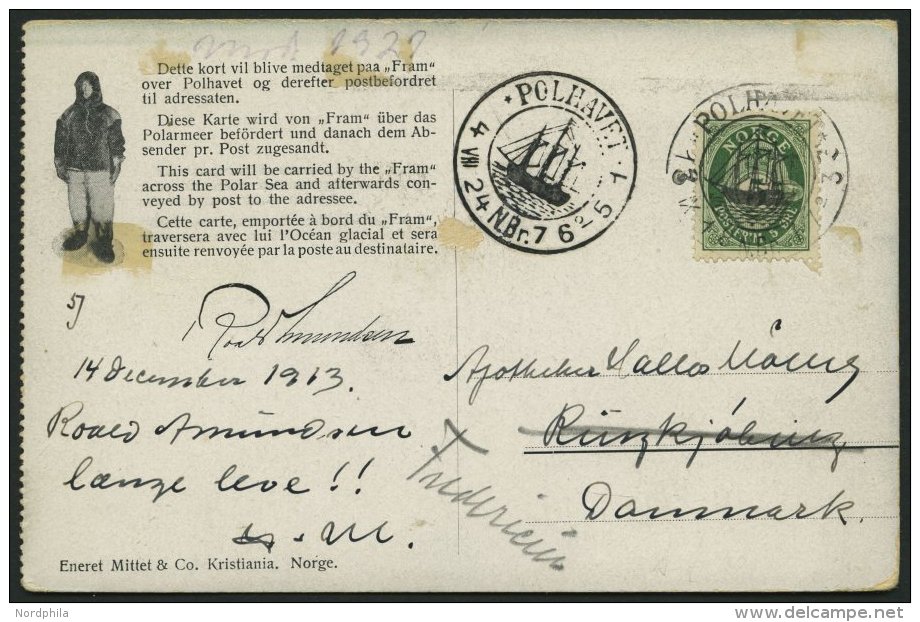 1921
Dette kort vil blive medtaget paa „Fram"
over Polhavet og derefter postbefordret
til adressaten.
Diese Karte wird von „Fram" über das
Polarmeer befördert und danach dem Ab-
sender pr. Post zugesandt.
This card will be carried by the „Fram"
across the Polar Sea and afterwards con-
veyed by post to the adressee.
Cette carte, emportée à bord du „Fram",
traversera avec lui l'Océan glacial et sera
ensuite renvoyée par la poste au destinataire.
POLHAVET
4 VIII 24 N.Br. 76° 51
POLHAVET
NORGE
Roald Amundsen
14 December 1913.
Roald Amundsen
længe leve!!
Apotheker
Danmark.
Fredericia
Eneret Mittet & Co. Kristiania. Norge.
Nordphila
www.delcampe.net